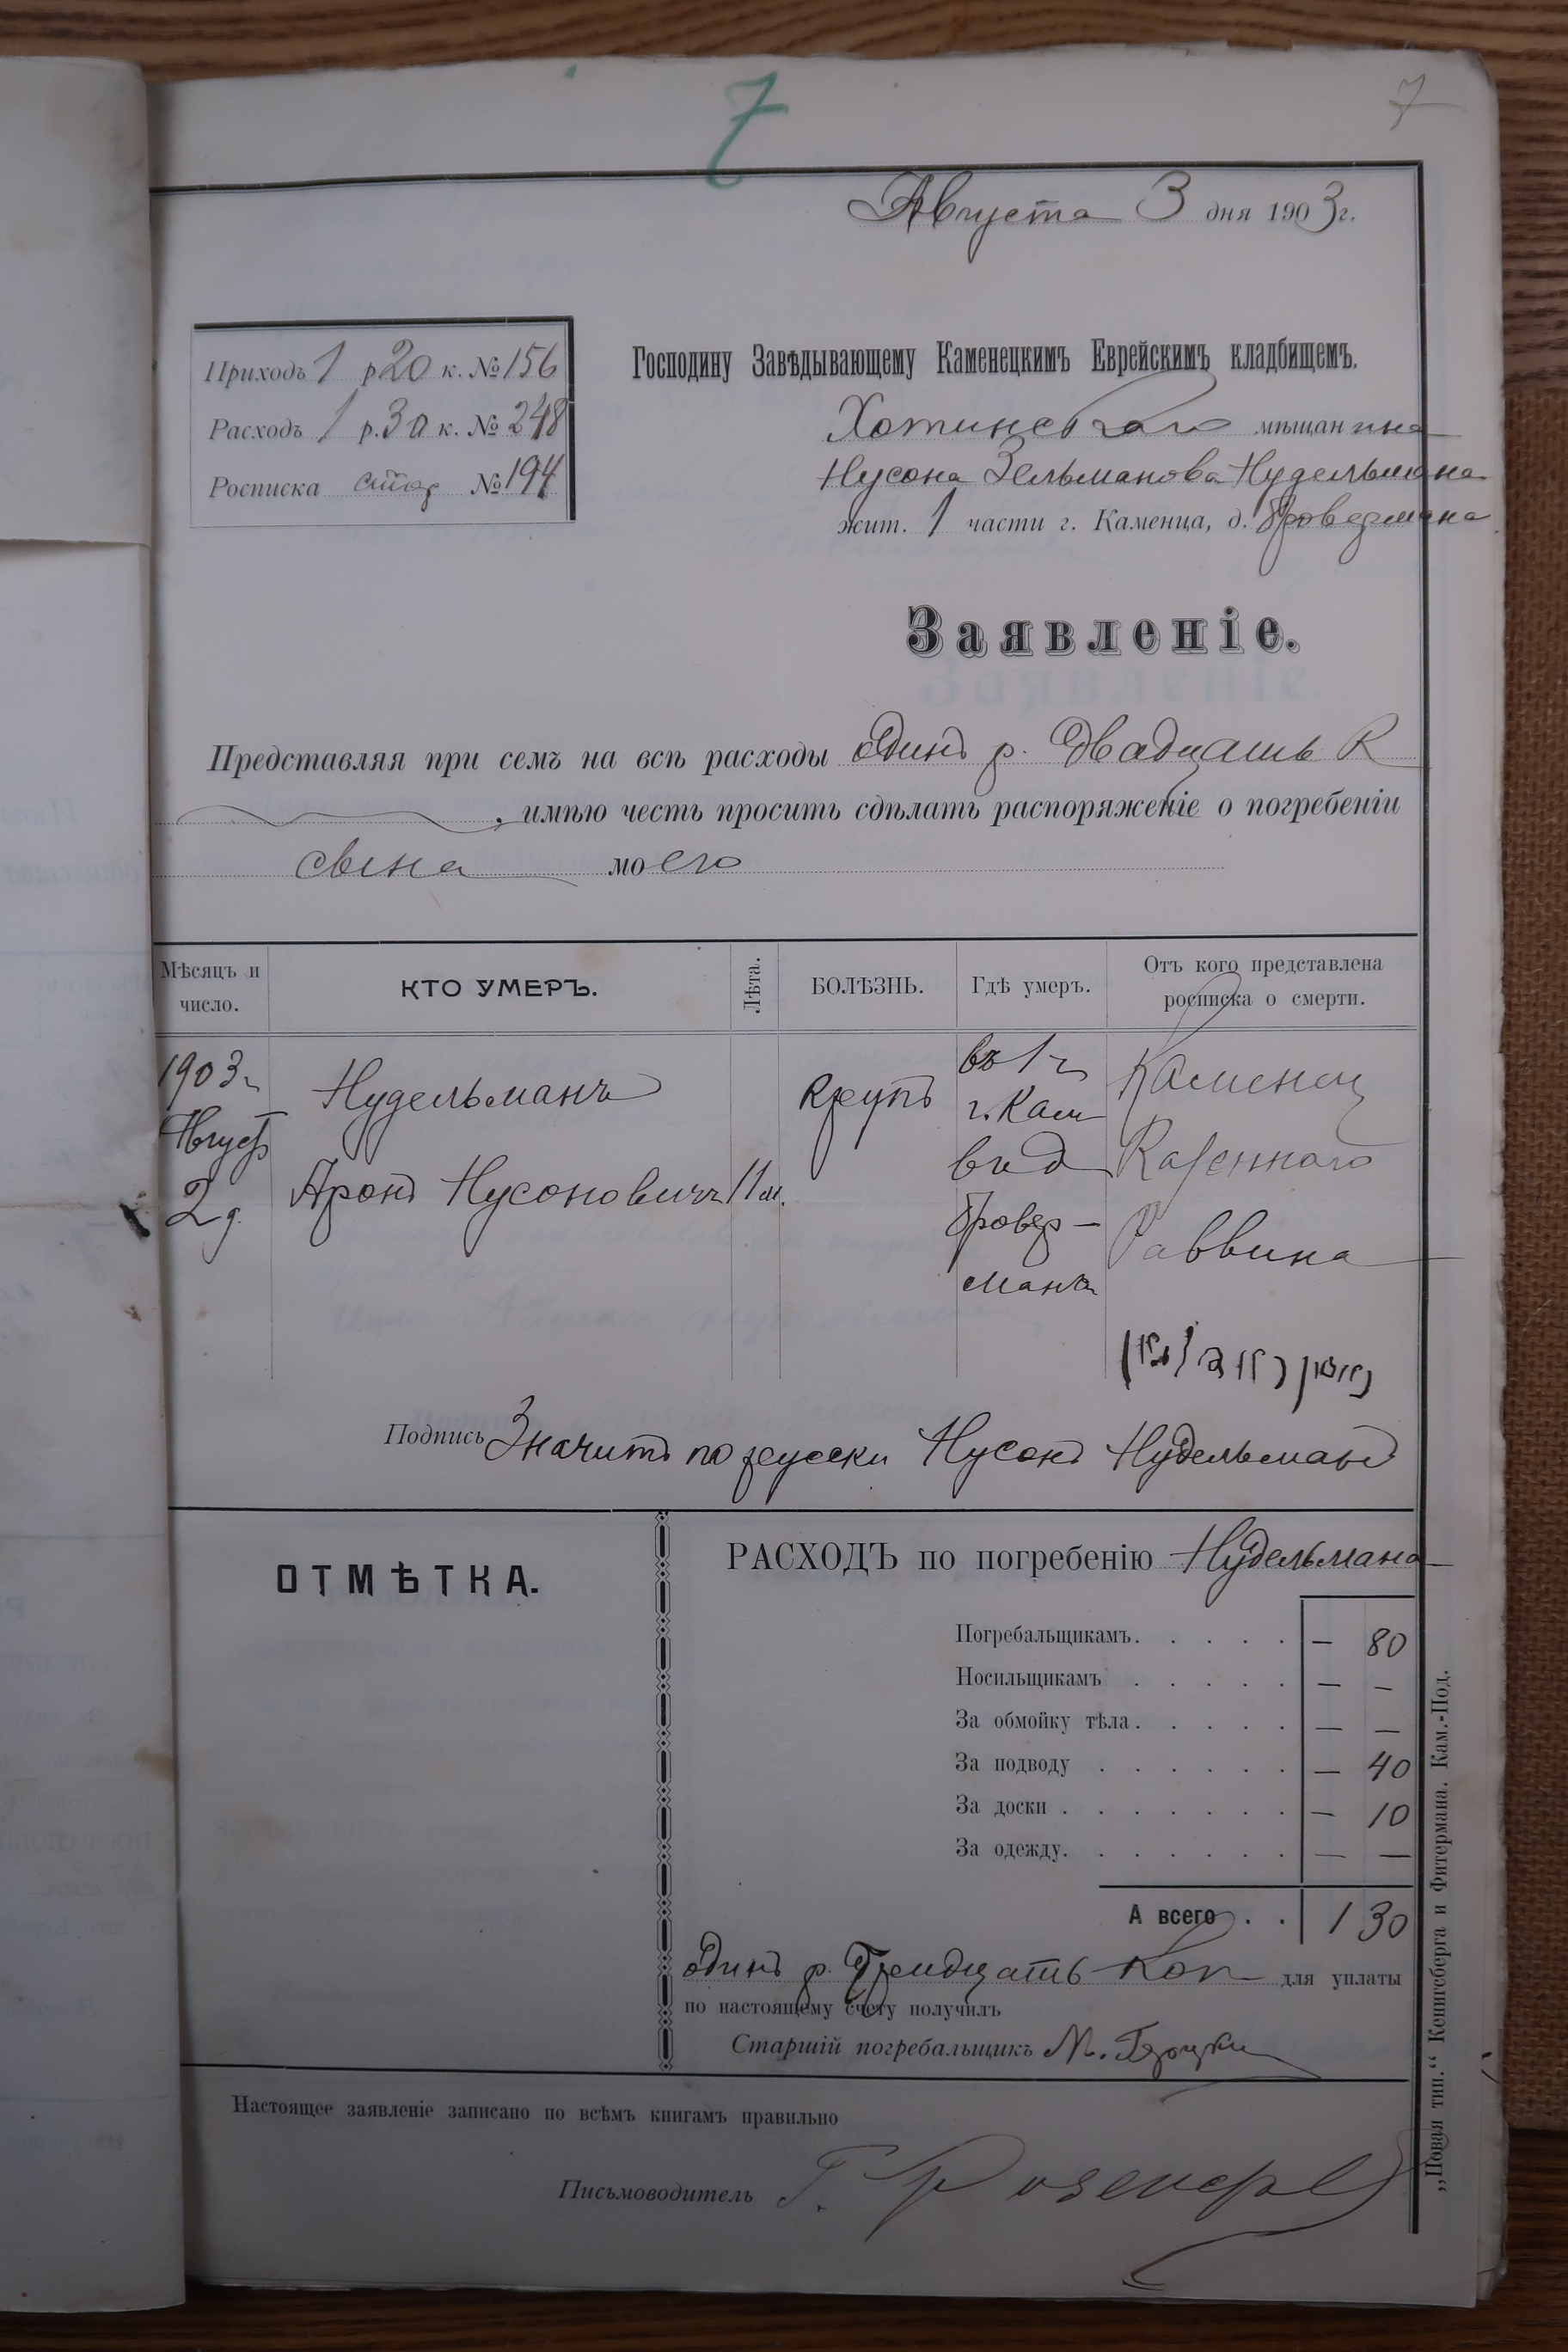 7
7
Августа 3 дня 1903 г.
Приходъ 1 р 20 к. № 156
Расходъ 1 р. 30 к. № 248
Росписка № 194
Господину Завѣдывающему Каменецкимъ Еврейскимъ кладбищемъ.
Хотинскаго мѣщанина
Нусона Зельманова Нудельмана
жит. 1 части г. Каменца, д. Бровермана
Заявленіе.
Представляя при семъ на всѣ расходы одинъ р. двадцать к
, имѣю честь просить сдѣлать распоряженіе о погребеніи
сына моего
Мѣсяцъ и число. КТО УМЕРЪ. Лѣта. БОЛѢЗНЬ. Гдѣ умеръ. Отъ кого представлена росписка о смерти.
1903 г. Нудельманъ крупъ въ 1 ч Каменец
Август г. Кам Казеннаго
2 д. Аронъ Нусоновичъ 11 м. в д Раввина
Бровер-
мана
Подпись Значитъ по русски Нусонъ Нудельманъ
ОТМѢТКА.
РАСХОДЪ по погребенію Нудельмана
Погребальщикамъ. . . . . . — 80
Носильщикамъ . . . . . — —
За обмойку тѣла. . . . . . — —
За подводу . . . . . . — 40
За доски . . . . . . . — 10
За одежду. . . . . . . — —
А всего . . 1 30
одинъ р. тридцать коп для уплаты
по настоящему счету получилъ
Старшій погребальщикъ М.
Настоящее заявленіе записано по всѣмъ книгамъ правильно
Письмоводитель Г.
„Новая тип.“ Кенигсберга и Фитермана. Кам.-Под.